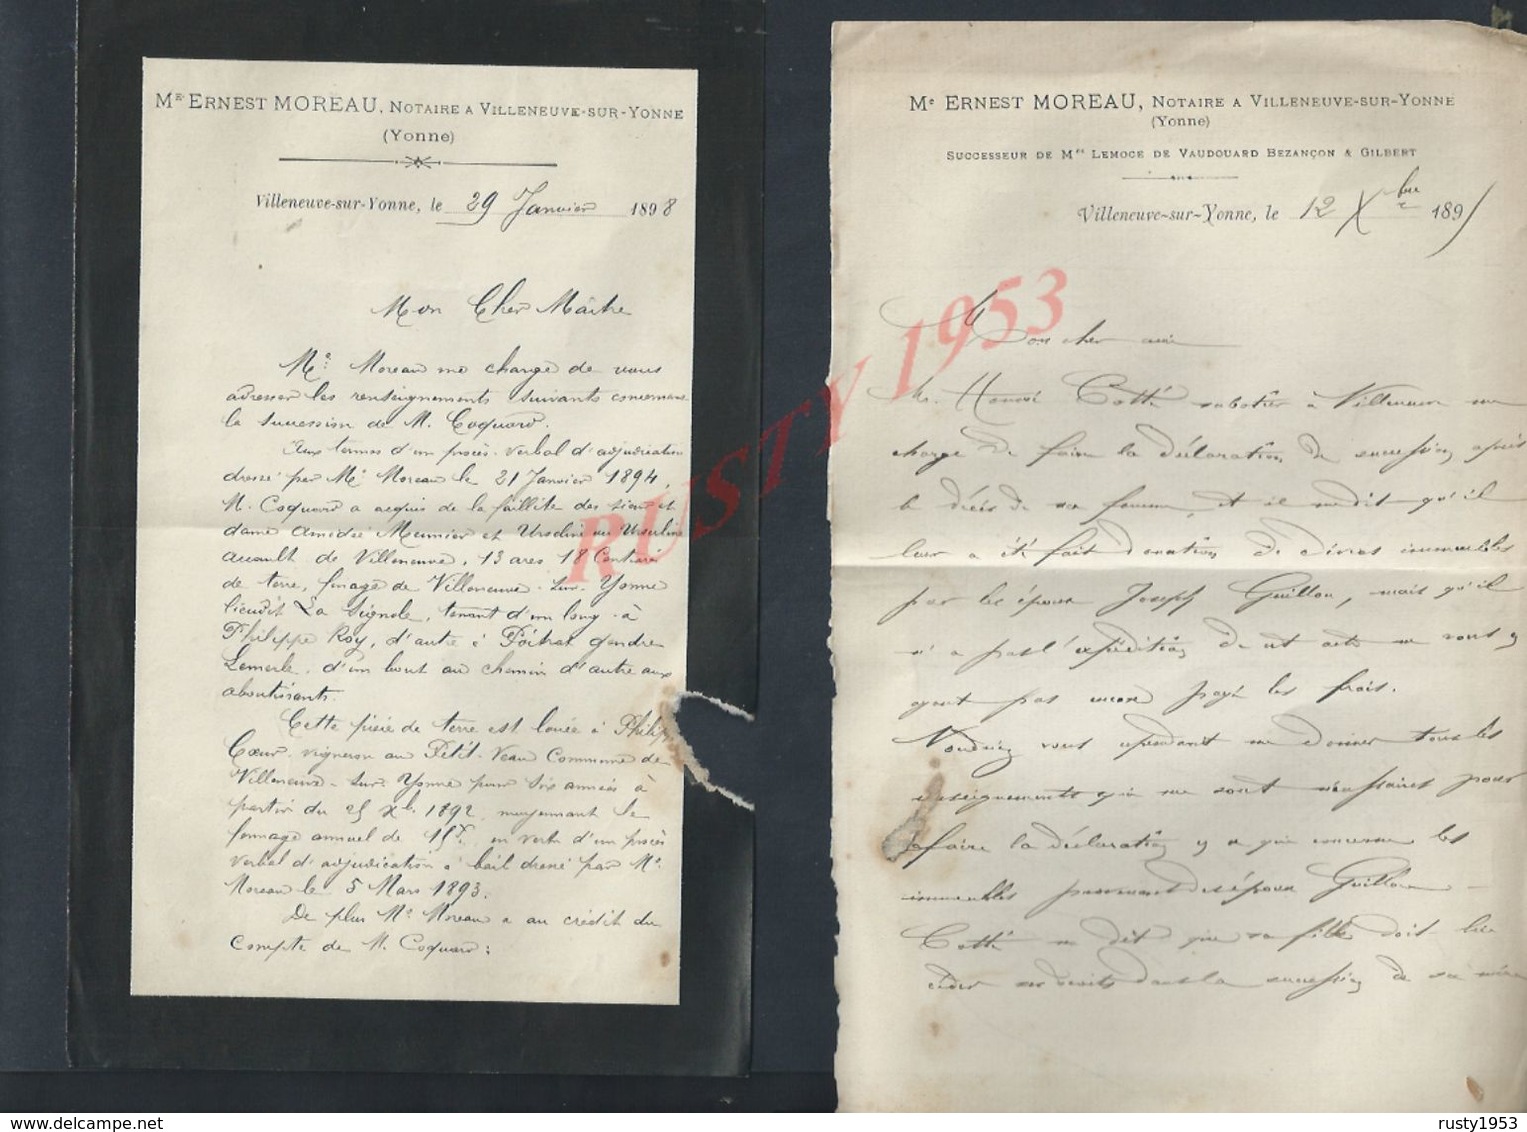 Me ERNEST MOREAU, NOTAIRE A VILLENEUVE-SUR-YONNE
(Yonne)
Villeneuve-sur-Yonne, le 29 Janvier 1898
Mon Cher Maître
Me Moreau me charge de vous
adresser les renseignements suivants concernant
la succession de M. Coquard.
Aux termes d'un procès-verbal d'adjudication
dressé par Me Moreau le 21 Janvier 1894,
M. Coquard a acquis de la faillite des sieur et
dame Amédée Meunier et Ursuline
de Villeneuve, 13 ares 18 Centiares
de terre, finage de Villeneuve-sur-Yonne
lieudit La Seignole, tenant d'un long à
Philippe Roy, d'autre à gendre
Lemerle, d'un bout au chemin d'autre aux
aboutissants.
Cette pièce de terre est louée à Philippe
Cœur, vigneron au Petit-Veau Commune de
Villeneuve-sur-Yonne pour six années à
partir du 25 Xbre 1892, moyennant le
fermage annuel de 15f, en vertu d'un procès
verbal d'adjudication à bail dressé par Me
Moreau le 5 Mars 1893.
De plus Me Moreau a au crédit du
Compte de M. Coquard:
Me ERNEST MOREAU, NOTAIRE A VILLENEUVE-SUR-YONNE
(Yonne)
SUCCESSEUR DE Mes LEMOCE DE VAUDOUARD BEZANÇON & GILBERT
Villeneuve-sur-Yonne, le 12 Xbre 1891
Mon cher ami
M. Honoré Cotté sabotier à Villeneuve me
charge de faire la déclaration de succession après
le décès de sa femme, et il me dit qu'il
leur a été fait donation de divers immeubles
par les époux Joseph Guillon, mais qu'il
n'a pas l'expédition de cet acte ne vous
ayant pas encore payé les frais.
Voudriez vous cependant me donner tous les
renseignements qui me sont nécessaires pour
faire la déclaration en ce qui concerne les
immeubles provenant des époux Guillon
Cotté me dit que sa fille doit lui
céder ses droits dans la succession de sa mère
RUSTY 1953
rusty1953